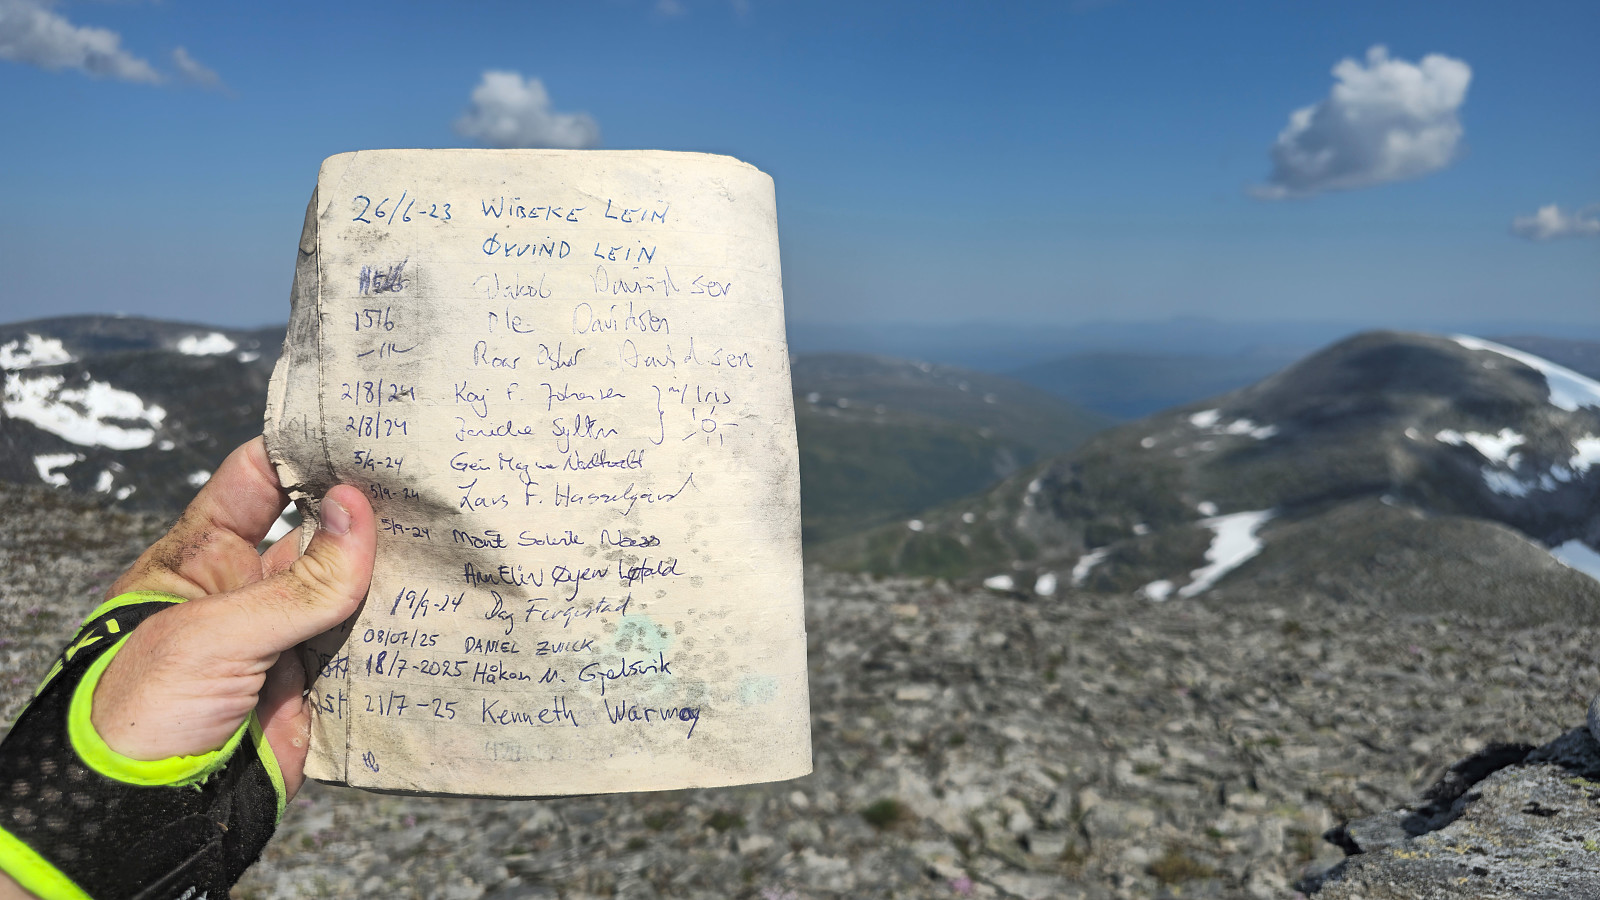 26/6-23 WIBEKE LEIN
ØYVIND LEIN
Jakob Davidsen
15/6 Ole Davidsen
Roar Davidsen
2/8/24 Kaj F. Johansen } m/ Iris
2/8/24
5/9-24 Geir Magne
5/9-24 Lars F. Hasselgård
5/9-24 Marit Solveig Næss
Ann Elin Øyen
19/9-24 Dag Fergestad
08/07/25 DANIEL ZWICK
18/7-2025 Håkon M. Gjelsvik
21/7-25 Kenneth Warmoy